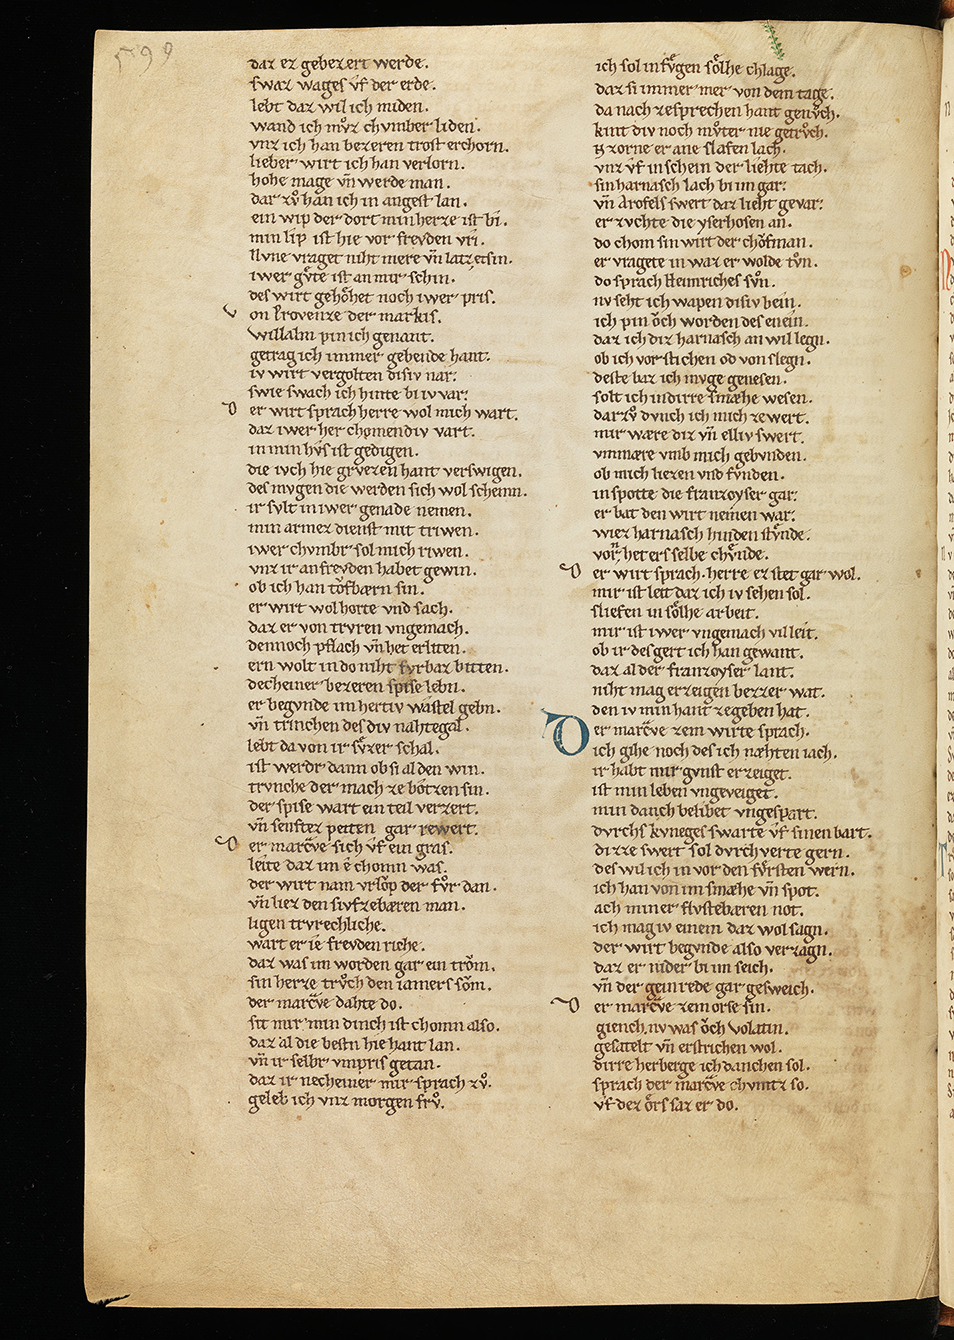 599
daz ez gebezert werde.
swaz wages vf der erde.
lebt daz wil ich miden.
wand ich mv̊z chvmber liden.
vnz ich han bezeren trost erchorn.
lieber wirt ich han verlorn.
hohe mage vñ werde man.
dar zv̊ han ich in angest lan.
ein wip der dort min herze ist bi.
min lip ist hie vor frevden vri.
Nvne vraget niht mere vñ latz et sin.
iwer gv̊te ist an mir schin.
des wirt gehohet noch iwer pris.
von Provenze der markis.
Willalm pin ich genant.
getrag ich immer gebende hant.
iv wirt vergolten disiv nar.
swie swach ich hinte bi iv var.
Der wirt sprach herre wol mich wart.
daz iwer her chomendiv vart.
in min hvs ist gedigen.
die ivch hie grvezen hant verswigen.
des mvgen die werden sich wol schemn.
ir svlt in iwer genade nemen.
min armez dienst mit triwen.
iwer chvmbr sol mich riwen.
vnz ir an frevden habet gewin.
ob ich han tofbærn sin.
er wirt wol horte vnd sach.
daz er von trvren vngemach.
dennoch pflach vñ het erliten.
ern wolt in do niht fvrbaz bitten.
decheiner bezeren spise lebn.
er begvnde im hertiv wastel gebn.
vñ trinchen des div nahtegal.
lebt da von ir svzer schal.
ist werdr dann ob si al den win.
trvnche der mach ze botzen sin.
der spise wart ein teil verzert.
vñ senftez petten gar rewert.
Der marcve sich vf ein gras.
leite daz im e chomn was.
der wirt nam vrlop der fv̊r dan.
vñ liez den sivfzebæren man.
ligen trvrechliche.
wart er ie frevden riche.
daz was im worden gar ein trom.
sin herze trv̊ch den iamers som.
der marcve dahte do.
sit mir min dinch ist chomn also.
daz al die bestn hie hant lan.
vñ ir selbr vnpris getan.
daz ir necheiner mir sprach zv̊.
geleb ich vnz morgen frv̊.
ich sol in fv̊gen solhe chlage.
daz si immer mer von dem tage.
da nach zesprechen hant genv̊ch.
kint div noch mv̊ter nie getrv̊ch.
zorne er ane slafen lach.
vnz vf in schein der liehte tach.
sin harnasch lach bi im gar.
vñ Arofels swert daz lieht gevar.
er zvchte die yserhosen an.
do chom sin wirt der chofman.
er vragete in waz er wolde tv̊n.
do sprach Heimriches sv̊n.
nv seht ich wapen disiv bein.
ich pin och worden des enein.
daz ich diz harnasch an wil legn.
ob ich vor stichen od von slegn.
deste baz ich mvge genesen.
solt ich in dirre smæhe wesen.
dar zv̊ dvnch ich mich ze wert.
mir wære diz vñ elliv swert.
vnmære vmb mich gebvnden.
ob mich liezen vnd fvnden.
in spotte die franzoyser gar.
er bat den wirt nemen war.
wiez harnasch hinden stvnde.
vorn het ers selbe chvnde.
Der wirt sprach. herre ez stet gar wol.
mir ist leit daz ich iv sehen sol.
sliefen in solhe arbeit.
mir ist iwer vngemach vil leit.
ob ir des gert ich han gewant.
daz al der franzoyser lant.
niht mag erzeigen bezzer wat.
den iv min hant zegeben hat.
Der marcve zem wirte sprach.
ich gihe noch des ich næhten iach.
ir habt mir gvnst erzeiget.
ist min leben vngeveiget.
min danch belibet vngespart.
dvrchs kvneges swarte vf sinen bart.
dizze swert sol dvrch verte gern.
des wil ich in vor den fvrsten wern.
ich han von im smæhe vñ spot.
ach miner flvstebæren not.
ich mag iv einem daz wol sagn.
der wirt begvnde also verzagn.
daz er nider bi im seich.
vñ der gein rede gar gesweich.
Der marcve zem orse sin.
giench. nv was och Volatin.
gesatelt vñ erstrichen wol.
dirre herberge ich danchen sol.
sprach der marcve chvmtz so.
vf dez ors saz er do.